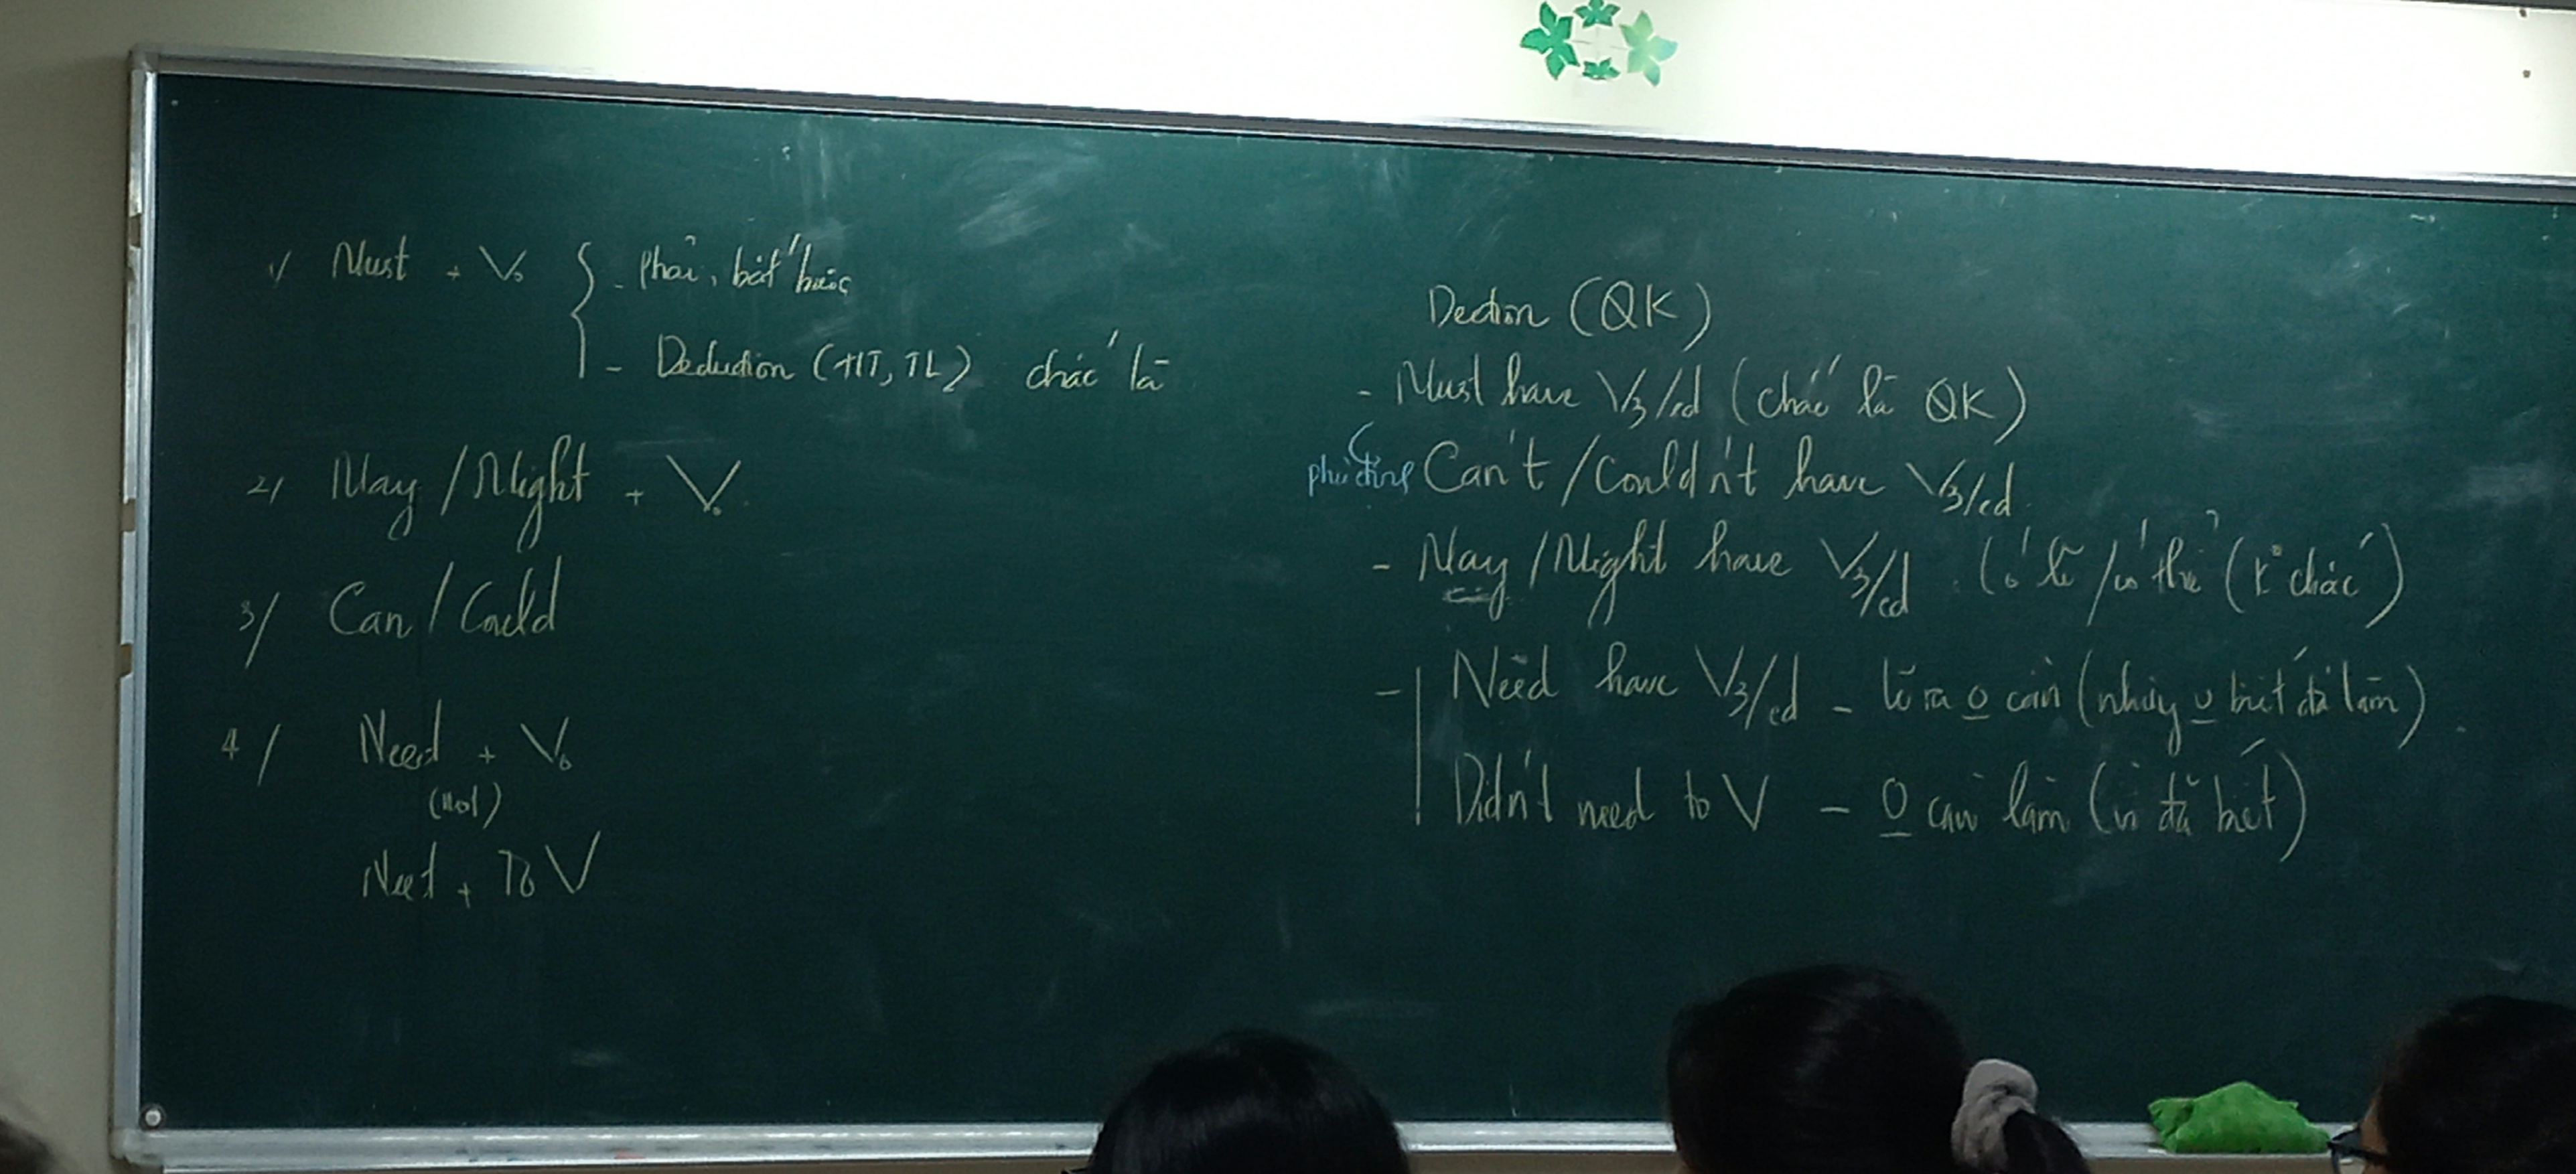 1/ Must + V₀ { - phải, bắt buộc
- Deduction (HT, TL) chắc là
2/ May / Might + V₀
3/ Can / Could
4/ Need + V₀
(not)
Need + To V
Dection (QK)
- Must have V3/ed (chắc là QK)
phủ định Can't / Couldn't have V3/ed
- May / Might have V3/ed . Có lẽ / có thể (k° chắc)
- Need have V3/ed - lẽ ra 0 cần (nhưng 0 biết đã làm)
Didn't need to V - 0 cần làm (vì đã biết)